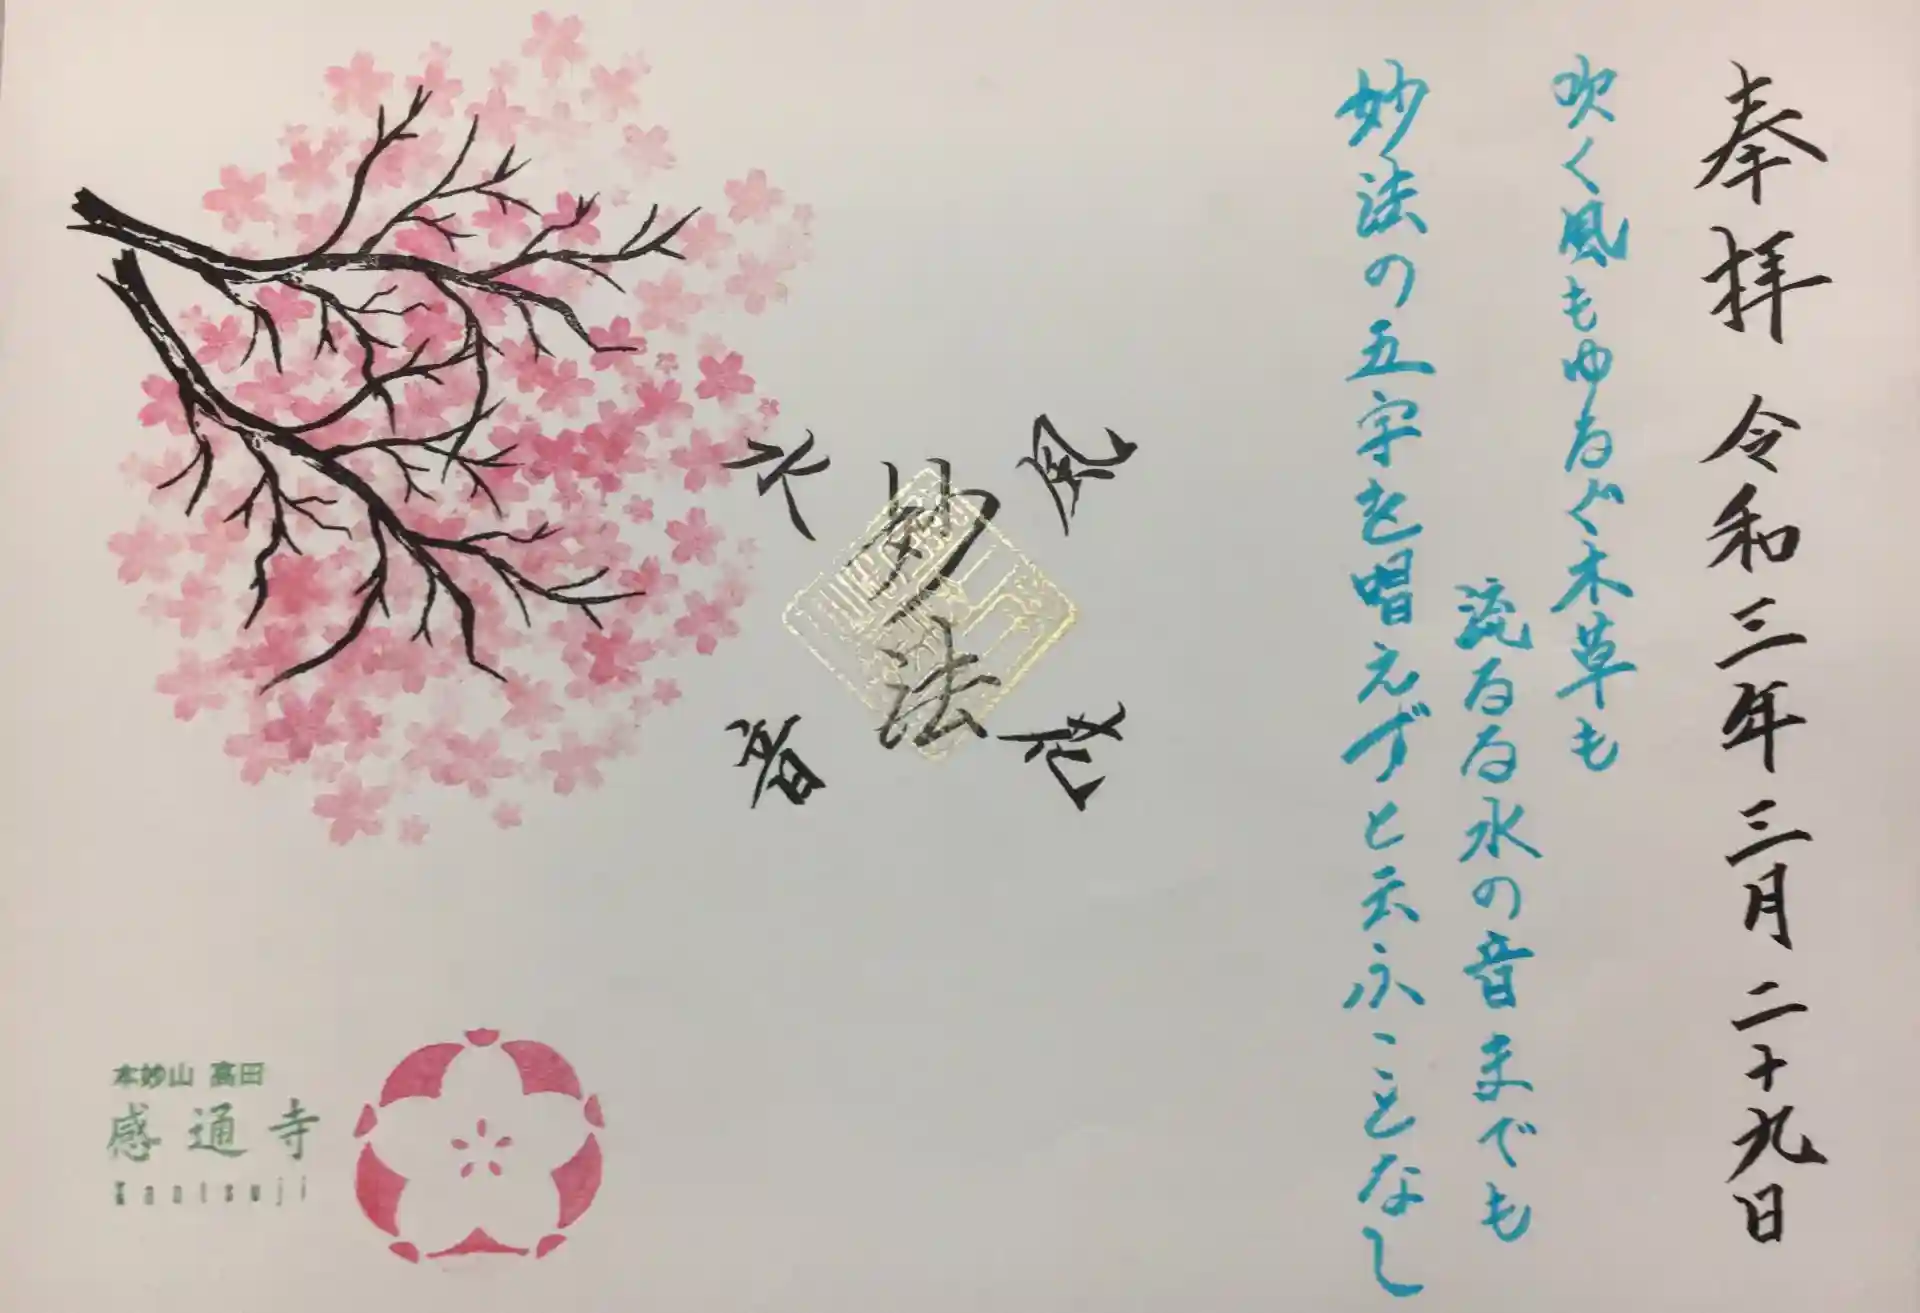 奉拝 令和三年三月二十九日
吹く風もゆるぐ木草も
流るる水の音までも
妙法の五字を唱えずと云ふことなし
風
水
妙法
音
本妙山 高田
感通寺
Kantsuji